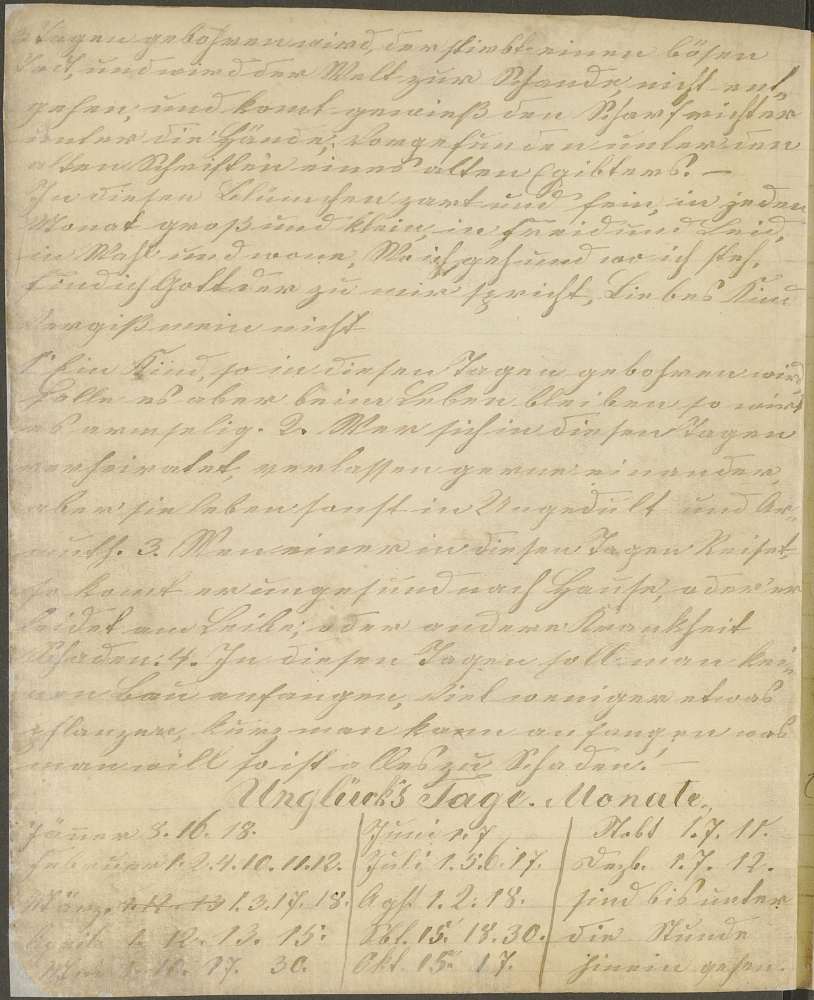 Tagen gebohren wird, der stirbt einen bösen
Tod, und wird der Welt zur Schande nicht ent„
gehen, und komt gewieß den Scharfrichter
unter die Hände; Vorgefunden unter den
alten Schriften eines alten Egibters. —
In diesen Blümchen zart und fein, in jeden
Monat groß und klein, in Freid und Leid,
in Wahl und wone, Wo ich geh und wo ich steh,
find ich Gott der zu mir spricht, Liebes Kind
Vergißmein nicht
1. Ein Kind, so in diesen Tagen gebohren wird
solle es aber beim Leben bleiben so wird
es armselig. 2. Wer sich in diesen Tagen
verheiratet, verlassen gerne einander,
aber sie leben sonst in Ungedult und Ar„
muth. 3. Wen einer in diesen Tagen Reiset,
so komt er ungesund nach Hause, oder er
leidet am Leibe, oder andere Krankheit
Schaden: 4. In diesen Tagen soll man kei„
nen Bau anfangen, viel weniger etwas
pflanzen, kurz man kann anfangen was
man will so ist alles zu Schaden! —
Unglücks Tage. Monate.
Jäner 3. 16. 18. Juni 1. 7 Nobt 1. 7. 11.
Februer 1. 2. 4. 10. 11. 12. Juli 1. 5. 6. 17. Dezb. 1. 7. 12.
März. 1. 3. 17. 18. Agst 1. 2. 18. sind bis unter
April 1. 12. 13. 15. Sbt. 15. 18. 30. die Stunde
Mai 10. 17. 30. Okt. 15. 17. hinein gehen.